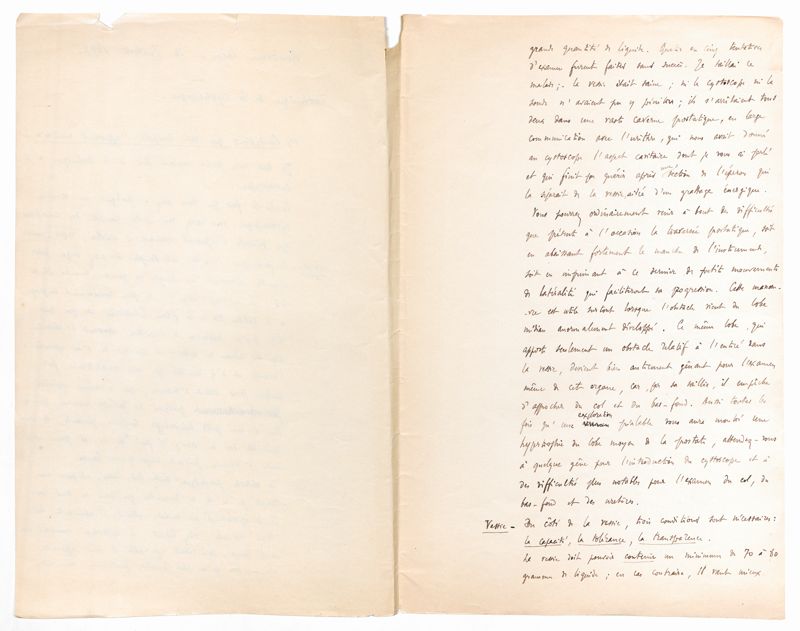 grande quantité de liquide. Quatre ou cinq tentatives
d'examen furent faites sans succès. Je taillai ce
malade; la vessie était saine; ni le cystoscope ni la
sonde n'avaient pu y pénétrer; ils s'arrêtaient tous
deux dans une vaste caverne prostatique, en large
communication avec l'urèthre, qui nous avait donné
au cystoscope l'aspect cavitaire dont je vous ai parlé
et qui finit par guérir après une section de l'éperon qui
la séparait de la vessie, aidée d'un grattage énergique.
Vous pourrez ordinairement venir à bout des difficultés
que présente à l'occasion la traversée prostatique, soit
en abaissant fortement le manche de l'instrument,
soit en imprimant à ce dernier de petits mouvements
de latéralité qui faciliteront sa progression. Cette manœu-
vre est utile surtout lorsque l'obstacle vient du lobe
médian anormalement développé. Ce même lobe qui
apporte seulement un obstacle relatif à l'entrée dans
la vessie, devient bien autrement gênant pour l'examen
même de cet organe, car, par sa saillie, il empêche
d'approcher du col et du bas-fond. Aussi toutes les
fois qu'une exploration préalable vous aura montré une
hypertrophie du lobe moyen de la prostate, attendez-vous
à quelque gêne pour l'introduction du cystoscope et à
des difficultés plus notables pour l'examen du col, du
bas-fond et des uretères.
Vessie - Du côté de la vessie, trois conditions sont nécessaires:
la capacité, la tolérance, la transparence.
La vessie doit pouvoir contenir un minimum de 70 à 80
grammes de liquide; en cas contraire, il vaut mieux